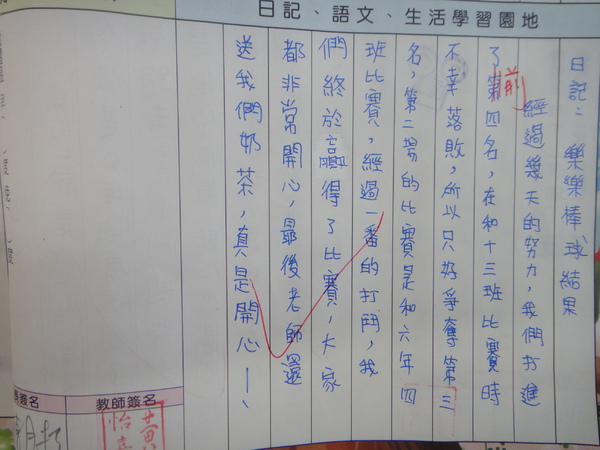 日記、語文、生活學習園地
日記：樂樂棒球結果
經過幾天的努力，我們打進
了第四名，在和十三班比賽時
前
不幸落敗，所以只好爭奪第三
名，第二場的比賽是和六年四
班比賽，經過一番的打鬥，我
們終於贏得了比賽，大家
都非常開心，最後老師還
送我們奶茶，真是開心！
教師簽名
簽名
黃
怡